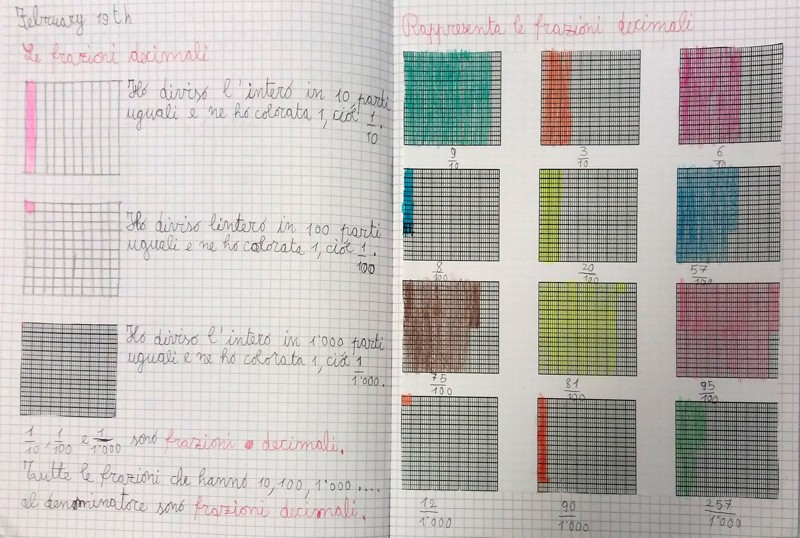 February 19th
Le frazioni decimali
Ho diviso l'intero in 10 parti
uguali e ne ho colorata 1, cioè 1/10.
Ho diviso lintero in 100 parti
uguali e ne ho colorata 1, cioè 1/100.
Ho diviso l'intero in 1'000 parti
uguali e ne ho colorata 1, cioè 1/1'000.
1/10, 1/100 e 1/1'000 sono frazioni decimali.
Tutte le frazioni che hanno 10, 100, 1'000....
al denominatore sono frazioni decimali.
Rappresenta le frazioni decimali
9/10 3/10 6/10
8/100 20/100 57/100
75/100 81/100 95/100
12/1'000 90/1'000 257/1'000